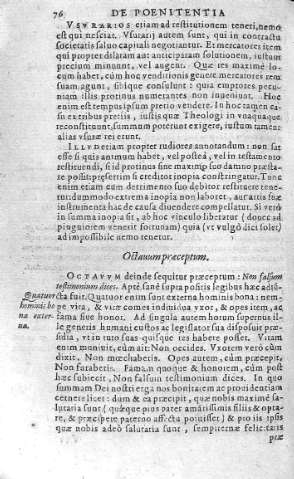 76 DE POENITENTIA
VSVRARIOS etiam ad restitutionem teneri, nemo
est qui nesciat. Vsurarij autem sunt, qui in contractu
societatis saluo capitali negotiantur. Et mercatores item
qui propter dilatam aut anticipatam solutionem, iustum
precium minuunt, vel augent. Quæ res maximè lo-
cum habet, cùm hoc venditionis genere mercatores rem
suam agunt, sibique consulunt: quia emptores pecu-
niam illis protinus numerantes non inueniunt. Hoc
enim est tempus ipsum pretio vendere. In hoc tamen ca-
su
reconstituunt, summum poterunt exigere, iustum tamen:
alias vsuræ rei erunt.
ILLVD etiam propter rudiores annotandum: non sat
esse si quis animum habet, vel postea, vel in testamento
restituendi, si id protinus sine
posit: præsertim si creditor inopia constringatur. Tune-
enim etiam cum detrimento suo debitor restituere tene-
tur: dummodo extrema inopia non laboret, aut artis suæ
instrumenta hac de causa diuendere compellatur. Si verò
in summa inopia sit, ab hoc vinculo liberatur (donec ad
pinguiorem venerit fortunam) quia (vt vulgò dici solet)
ad impossibile nemo tenetur.
Octauum præceptum.
OCTAVVM deinde sequitur præceptum: Non falsum
testimonium dices. Aptè sanè supra positis legibus hæc adiun-
Quatuor cta fuit. Quatuor enim sunt externa hominis bona: nem-
hominis bo pe vita, & vitæ comes indiuidua vxor, & opes item, ac
na exter- fama siue honor. Ad singula autem horum superius il-
na. le generis humani custos ac legislator sua disposuit præ-
sidia, vt in tuto suas quisque res habere posset. Vitam
enim muniuit, cùm ait: Non occides. Vxorem verò cùm
dixit. Non mœchaberis. Opes autem, cùm præcepit,
Non furaberis. Famam quoque & honorem, cùm post
hæc subiecit, Non falsum testimonium dices. In quo
summam Dei nostri erga nos bonitatem ac prouidentiam
cernere licet: dum & ea præcipit, quæ nobis maximè sa-
lutaria sunt (quæque pius pater amantissimis filiis & opta-
re, & præcipere paterno affectu potuisset) & pro iis ipsis
quæ nobis adeò salutaria sunt, sempiternæ felicitatis
præ